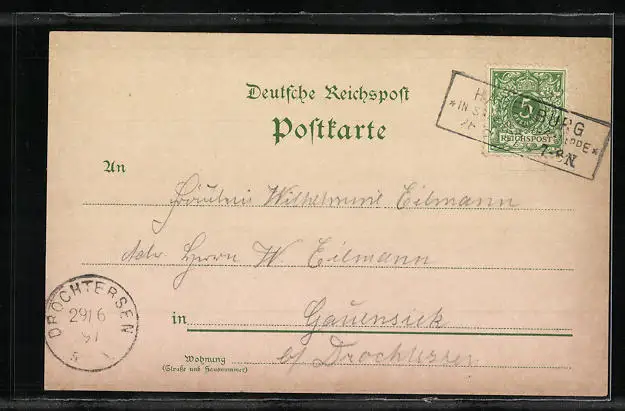 Deutsche Reichspost
Postkarte
5
REICHSPOST
HAMBURG
*IN S
7-8N
An
Fräulein Wilhelmine Eilmann
Adr. Herrn W. Eilmann
in Gauensiek
b/ Drochtersen
Wohnung
(Straße und Hausnummer)
DROCHTERSEN
29/6
97